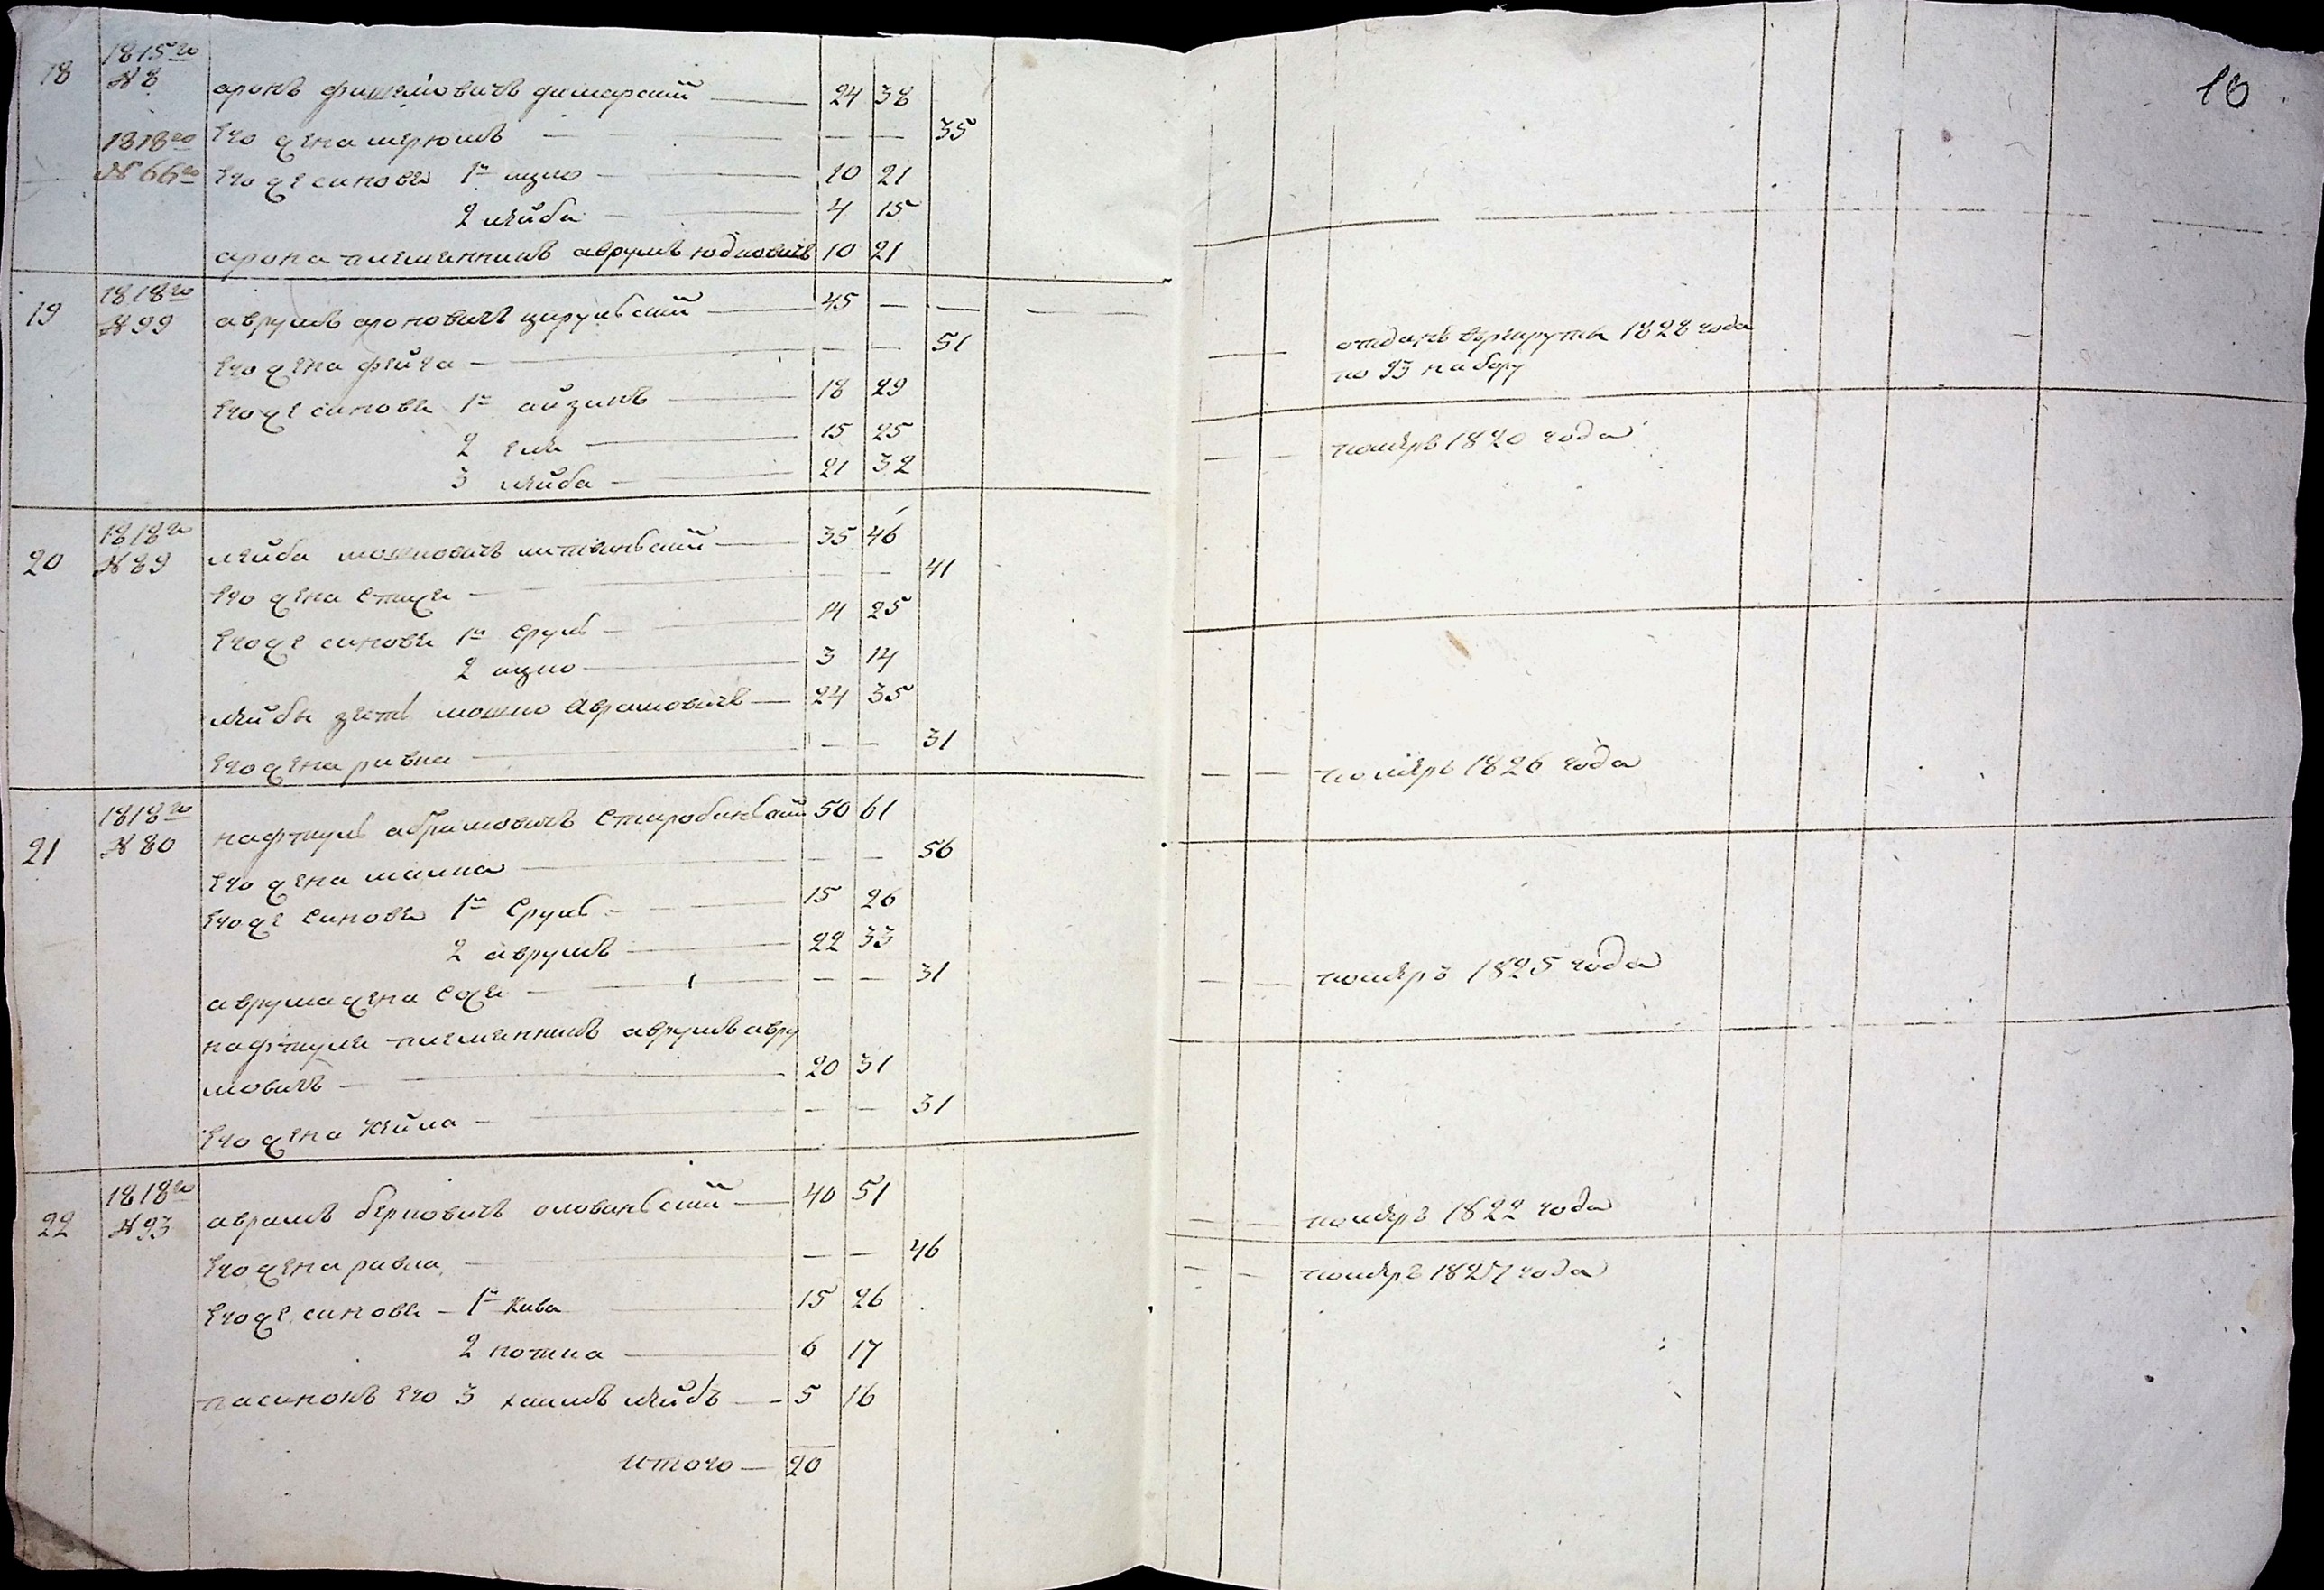 18 1815го №8 аронъ фишелiовичъ 24 38
1818го его жена 35
№66го его же синове 1й ицко 10 21
2 лейба 4 15
арона племенникъ аврумъ юдковичъ 10 21
19 1818го №99 аврумъ ароновичъ цирульскiй 45 — —
его жена фейга — — 51
его же синове 1й айзикъ 18 29
2 ели 15 25
3 лейба 21 32
20 1818го №89 лейба мошковичъ литвинскiй 35 46
его жена стися — — 41
его же синове 1й сруль 14 25
2 ицко 3 14
лейбы зять мошко аврамовичъ 24 35
его жена ривка — — 31
21 1818го №80 нафтуль абрамовичъ старобинскiй 50 61
его жена малка — — 56
его же синове 1й сруль 15 26
2 аврумъ 22 33
аврума жена сося — — 31
нафтули племенникъ аврумъ авру
мовичъ 20 31
его жена хейка — — 31
22 1818го №93 аврамъ берковичъ словинскiй 40 51
его жена ривка — — 46
его же синове 1й кива 15 26
2 нотка 6 17
пасинокъ его 3 хаимъ лейбъ 5 16
итого — 20
10
— — отданъ въ рекруты 1828 года
по 93 набору
— — померъ 1820 года
— — померъ 1826 года
— — померъ 1825 года
— — померъ 1822 года
— — померъ 1827 года